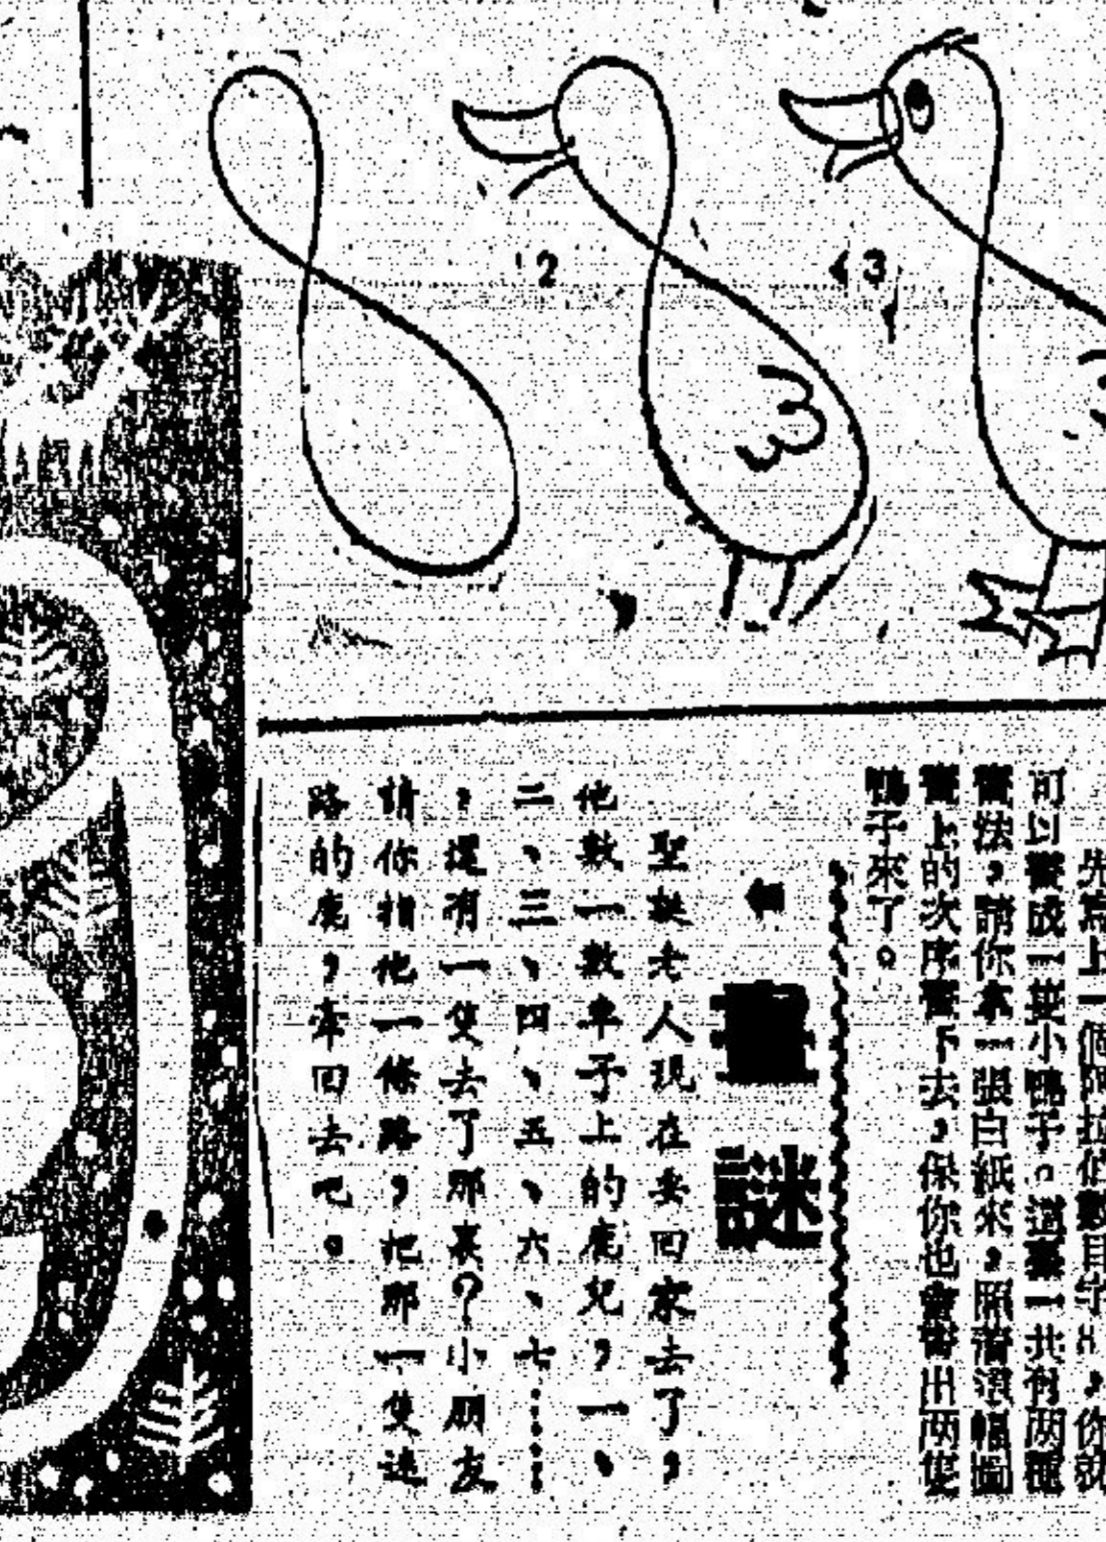 先寫上一個阿拉伯數目字8,你就
可以畫成一隻小鴨子。這裏一共有兩種
畫法,請你拿一張白紙來,照着這幅圖
畫上的次序畫下去,保你也會畫出兩隻
鴨子來了。
畫謎
聖誕老人現在要回家去了,
他數一數車子上的鹿兒,一、
二、三、四、五、六、七……
,還有一隻去了那裏?小朋友
請你指他一條路,把那一隻迷
路的鹿,牽回去吧。
2
3